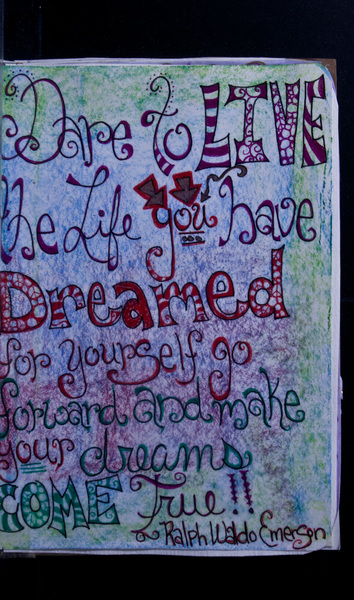 Dare to LIVE
the Life you have
Dreamed
for yourself go
forward and make
your dreams
COME True!!
Ralph Waldo Emerson